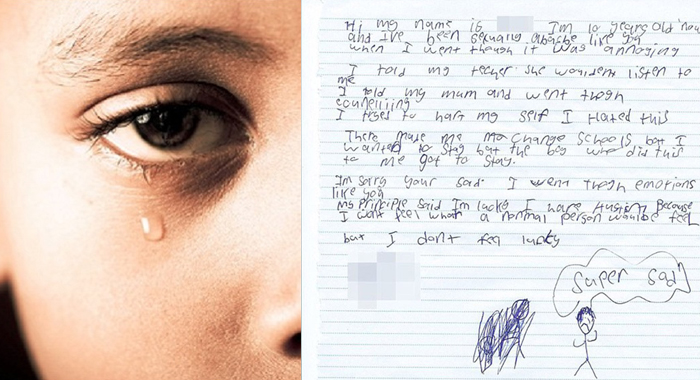 Hi my name is I'm 10 years old now
and I've been sexually like you
when I went though it was annoying
I told my techer she wouldent listen to
me
I told my mum and went thogh
I tryed to hart my self I Hated this
There made me change schools but I
wanted to stay but the boy who did this
to me got to stay.
Im sorry your sad I went thogh emotions
like you
my principle said Im lucky I have because
I wont feel what a normal person would be feel
but I don't feel lucky
super sad